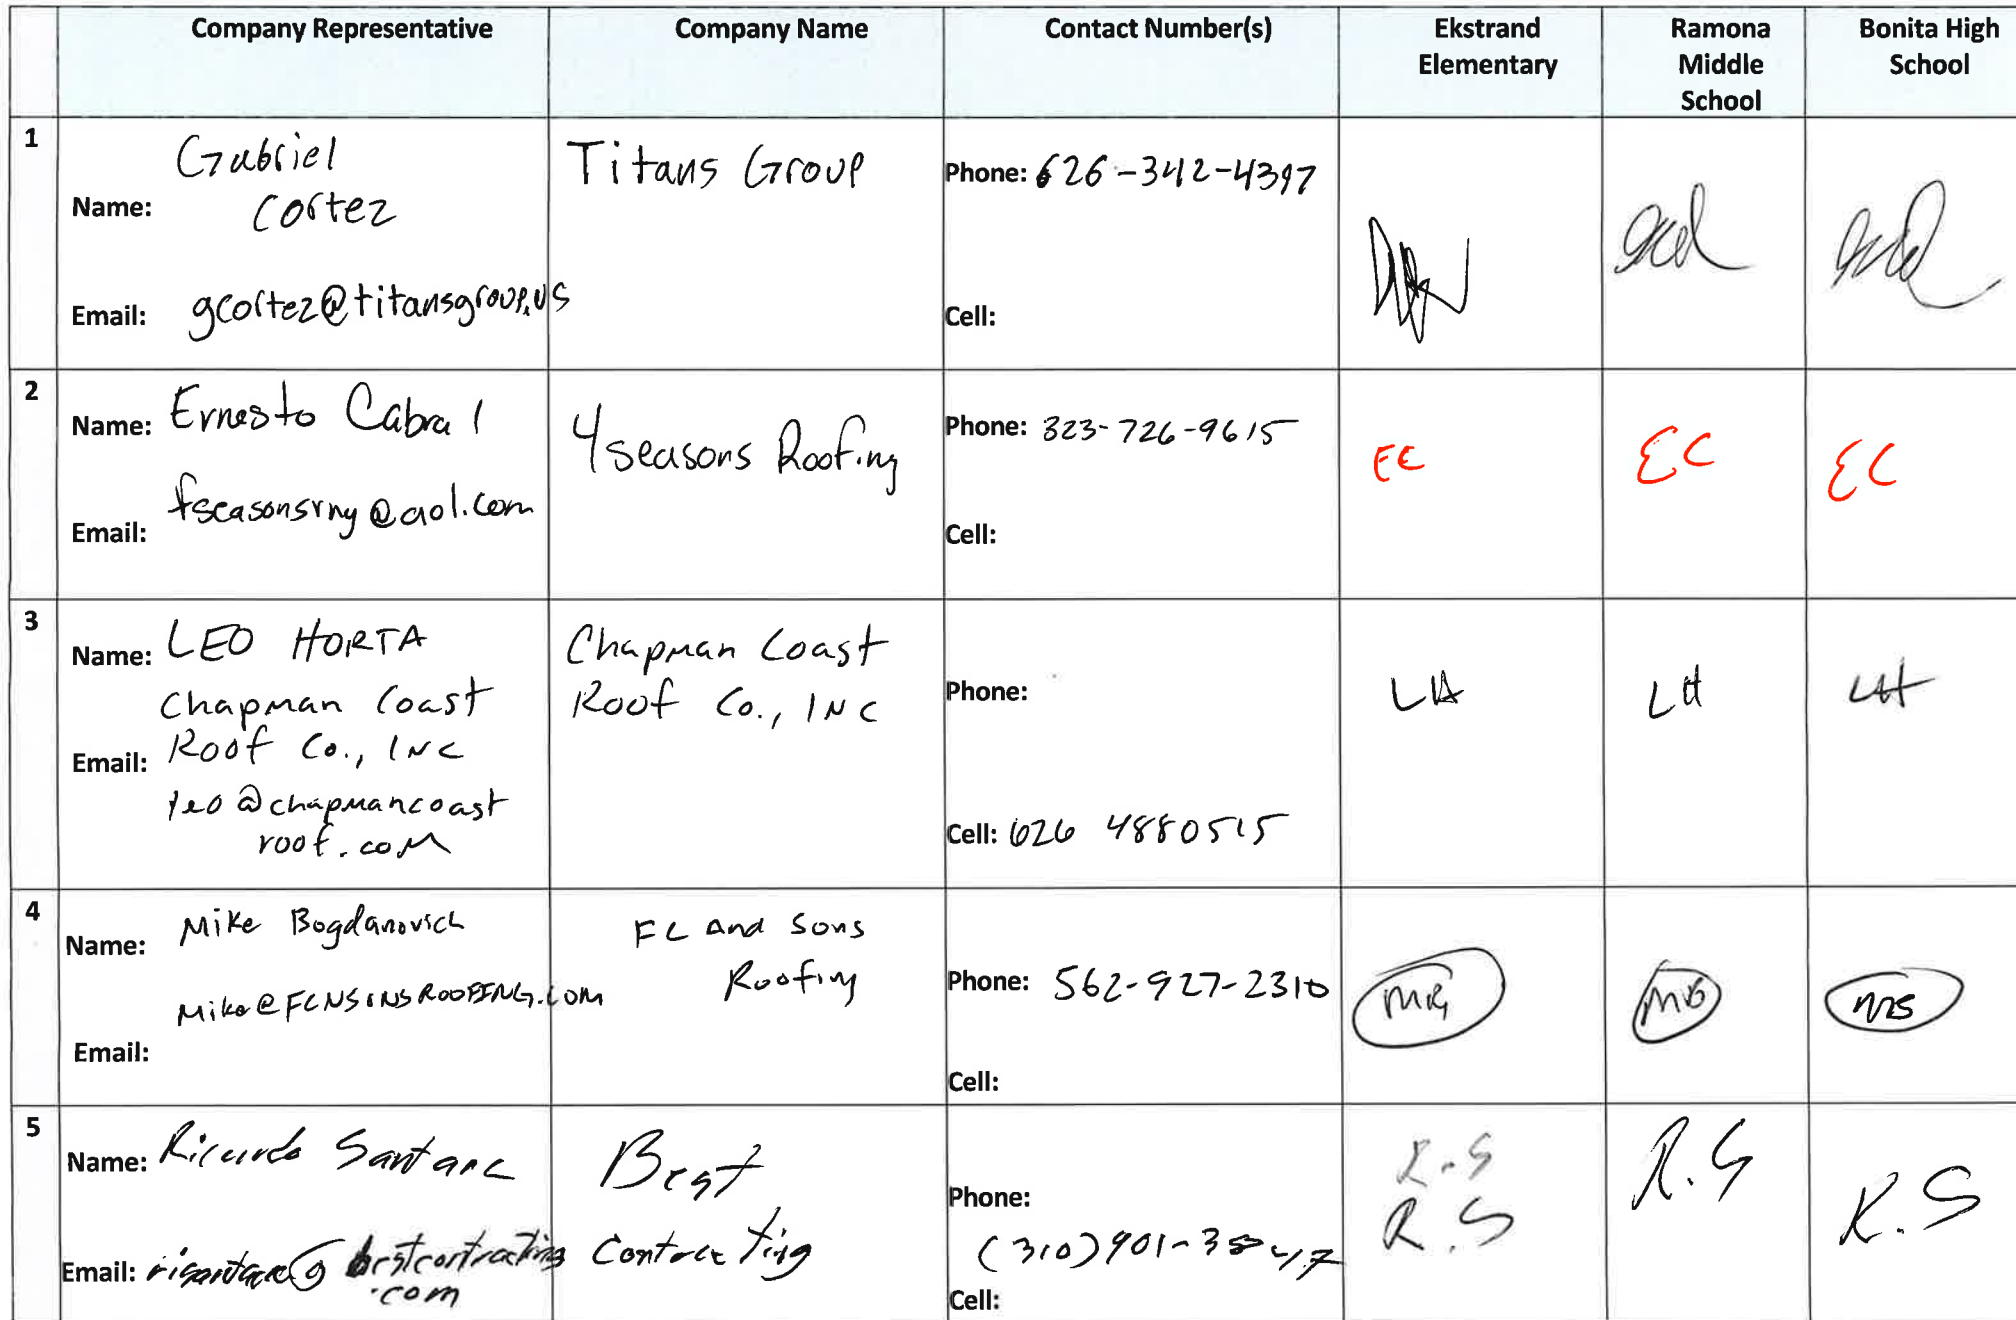 Company Representative
Company Name
Contact Number(s)
Ekstrand
Elementary
Ramona
Middle
School
Bonita High
School
1
Name: Gabriel
Cortez
Email: gcortez@titansgroup.us
Titans Group
Phone: 626-342-4397
Cell:
2
Name: Ernesto Cabral
Email: fseasonsrng@aol.com
4 seasons Roofing
Phone: 323-726-9615
Cell:
EC
EC
EC
3
Name: LEO HORTA
Chapman Coast
Email: Roof Co., INC
leo@chapmancoast
roof.com
Chapman Coast
Roof Co., INC
Phone:
Cell: 626 4880515
LH
LH
LH
4
Name: Mike Bogdanovich
Mike@FCNSONSROOFING.com
Email:
FC And Sons
Roofing
Phone: 562-927-2310
Cell:
MB
MB
MB
5
Name: Ricardo Santana
Email: bestcontracting
.com
Best
Contracting
Phone:
(310) 901-
Cell:
R.S
R.S
R.S
R.S